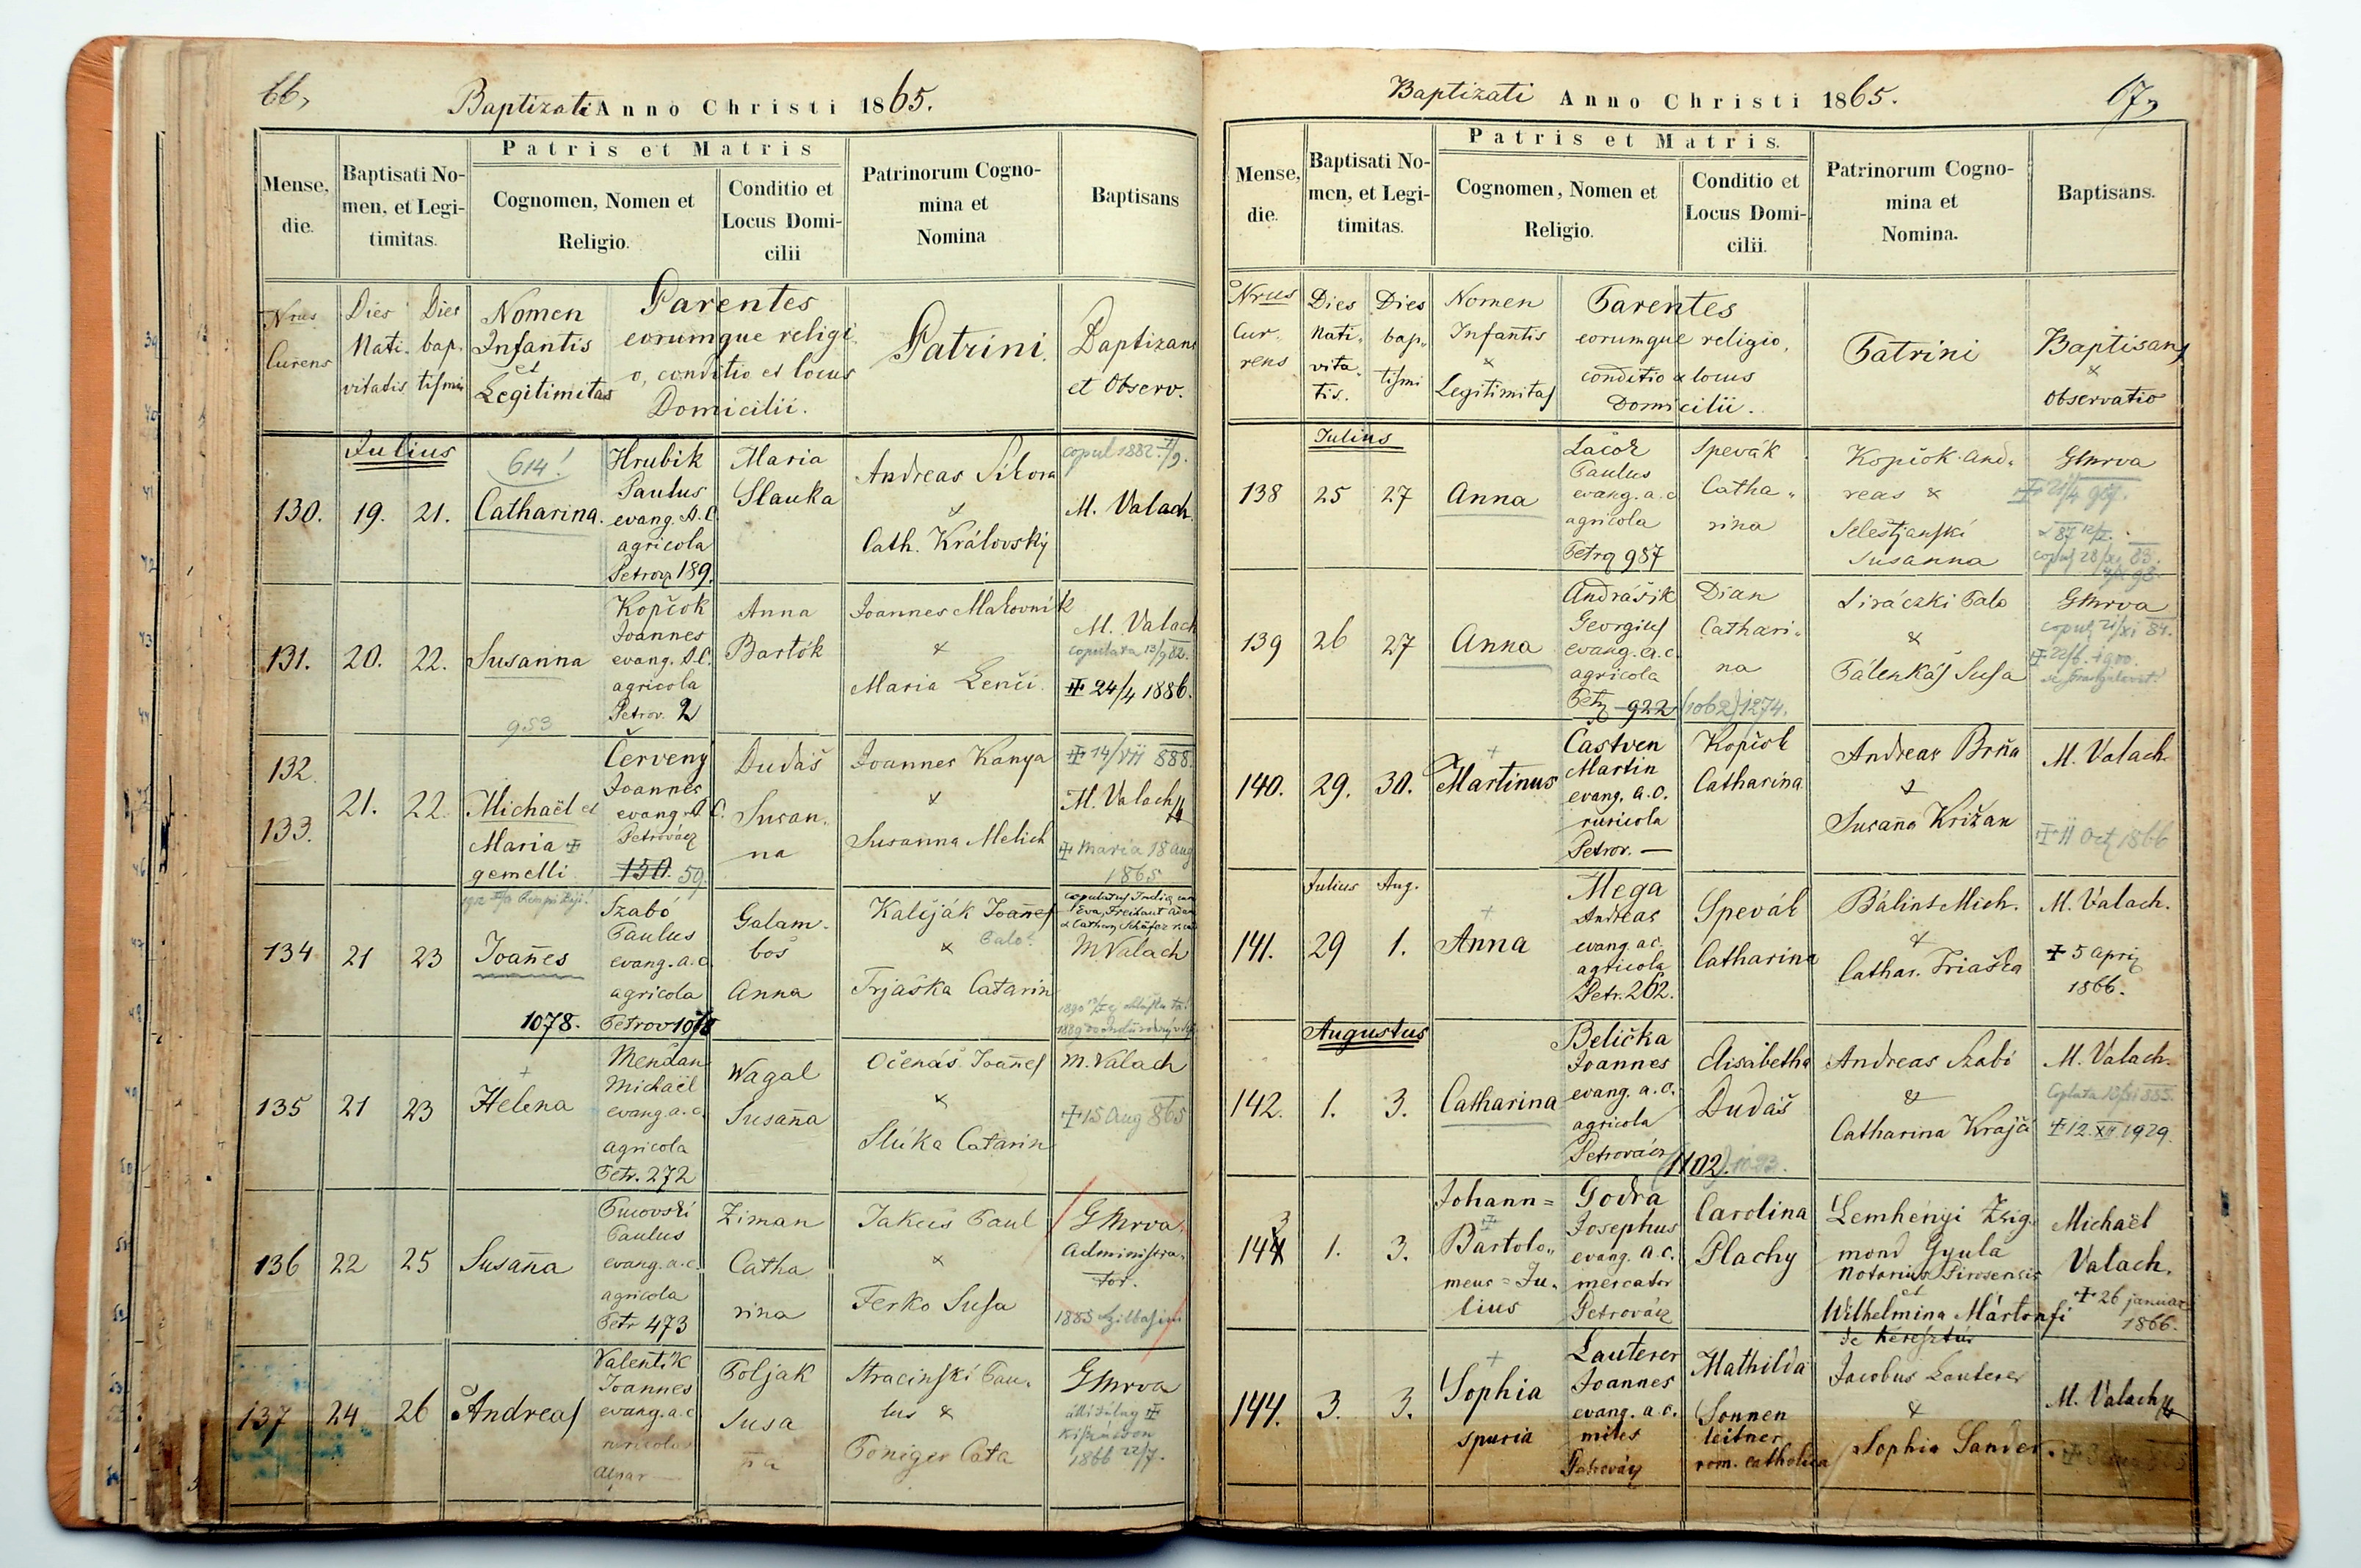 66,
Baptizati Anno Christi 1865.
Mense, die.
Baptisati No-
men, et Legi-
timitas.
Patris et Matris
Cognomen, Nomen et
Religio.
Conditio et
Locus Domi-
cilii
Patrinorum Cogno-
mina et
Nomina
Baptisans
Nrus
Curens
Dies
Nati-
vitatis
Dies
bap-
tismi
Nomen
Infantis
et
Legitimitas
Parentes
eorumque religi-
o, conditio et locus
Domicilii.
Patrini.
Baptizans
et Observ.
Julius
130.
19.
21.
614!
Catharina.
Hrubik
Paulus
evang. A.C.
agricola
Petrov. 189.
Maria
Slauka
Andreas Sikora
&
Cath. Královský
copul 1882
M. Valach
131.
20.
22.
Susanna
953
Kopčok
Joannes
evang. A.C.
agricola
Petrov. 2
Anna
Bartók
Joannes Makovník
&
Maria Lenči.
M. Valach
copulata 13/9 82.
24/4 1886.
132.
133.
21.
22.
Michaël et
Maria
gemelli
Červeny
Joannes
evang. A.C.
Petrovácz
150. 59.
Dudáš
Susan-
na
Joannes Kanya
&
Susanna Melich
14/VII 888.
M. Valach
Maria 18 aug
1865
134
21
23
Joañes
1078.
Szabó
Paulus
evang. a.c.
agricola
Petrov 1078
Galam-
boš
Anna
Kališják Joañes
& Palo?
Trjaška Catarin
M Valach
135
21
23
Helena
Mendan
Michaël
evang. a.c.
agricola
Petr. 272
Wagal
Susaña
Očenáš Joañes
&
Slúka Catarin
M. Valach
15 Aug 865
136
22
25
Susaña
Paulus
evang. a.c.
agricola
Petr 473
Ziman
Catha
rina
Jakus Paul
&
Ferko Susa
GMrva
Administra-
tor.
137
24
26
Andreas
Valentik
Joannes
evang. a.c.
Poljak
Susa
ña
Stracinski Pau-
lus &
Poniger Cata
GMrva
1866 22/7.
Baptizati Anno Christi 1865.
67,
Mense, die.
Baptisati No-
men, et Legi-
timitas.
Patris et Matris.
Cognomen, Nomen et
Religio.
Conditio et
Locus Domi-
cilii.
Patrinorum Cogno-
mina et
Nomina.
Baptisans.
Nrus
Cur-
rens
Dies
Nati-
vita-
tis.
Dies
bap-
tismi
Nomen
Infantis
&
Legitimitas
Parentes
eorumque religio,
conditio & locus
Domicilii.
Patrini
Baptisans
&
Observatio
Julius
138
25
27
Anna
Lačok
Paulus
evang. a.c
agricola
Petr 987
Spevák
Catha-
rina
Kopčok And-
reas &
Selestjanski
Susanna
GMrva
139
26
27
Anna
Andrášik
Georgius
evang. a.c.
agricola
Petr 922 (1062) 1274.
Dian
Cathari-
na
Siráczki Palo
&
Pálenkáš Susa
GMrva
140.
29.
30.
Martinus
Častven
Martin
evang. a.c.
ruricola
Petrov. —
Kopčok
Catharina
Andreas Brňa
&
Susaña Križan
M. Valach.
11 Oct 1866
Julius Aug.
141.
29
1.
Anna
Mega
Andreas
evang. a.c.
agricola
Petr. 262.
Spevák
Catharina
Bálint Mich.
&
Cathar. Triaška
M. Valach.
5 apri
1866.
Augustus
142.
1.
3.
Catharina
Belička
Joannes
evang. a.c.
agricola
Petrovácz (1102). 1023.
Elisabetha
Dudáš
Andreas Szabó
&
Catharina Krajči
M. Valach.
12. XII 1929.
3
144
1.
3.
Johann=
Bartolo-
meus=Ju-
lius
Godra
Josephus
evang. a.c.
mercator
Petrovácz
Carolina
Plachy
Lemhényi Zsig-
mond Gyula
Notarius Pirosensis
et
Wilhelmina Mártonfi
de Keresztúr
Michaël
Valach.
26 januar
1866.
144.
3.
3.
Sophia
spuria
Lauterer
Joannes
evang. a.c.
miles
Petrovácz
Mathilda
Sonnen
leitner
rom. catholica
Jacobus Lauterer
&
Sophia Sander.
M. Valach